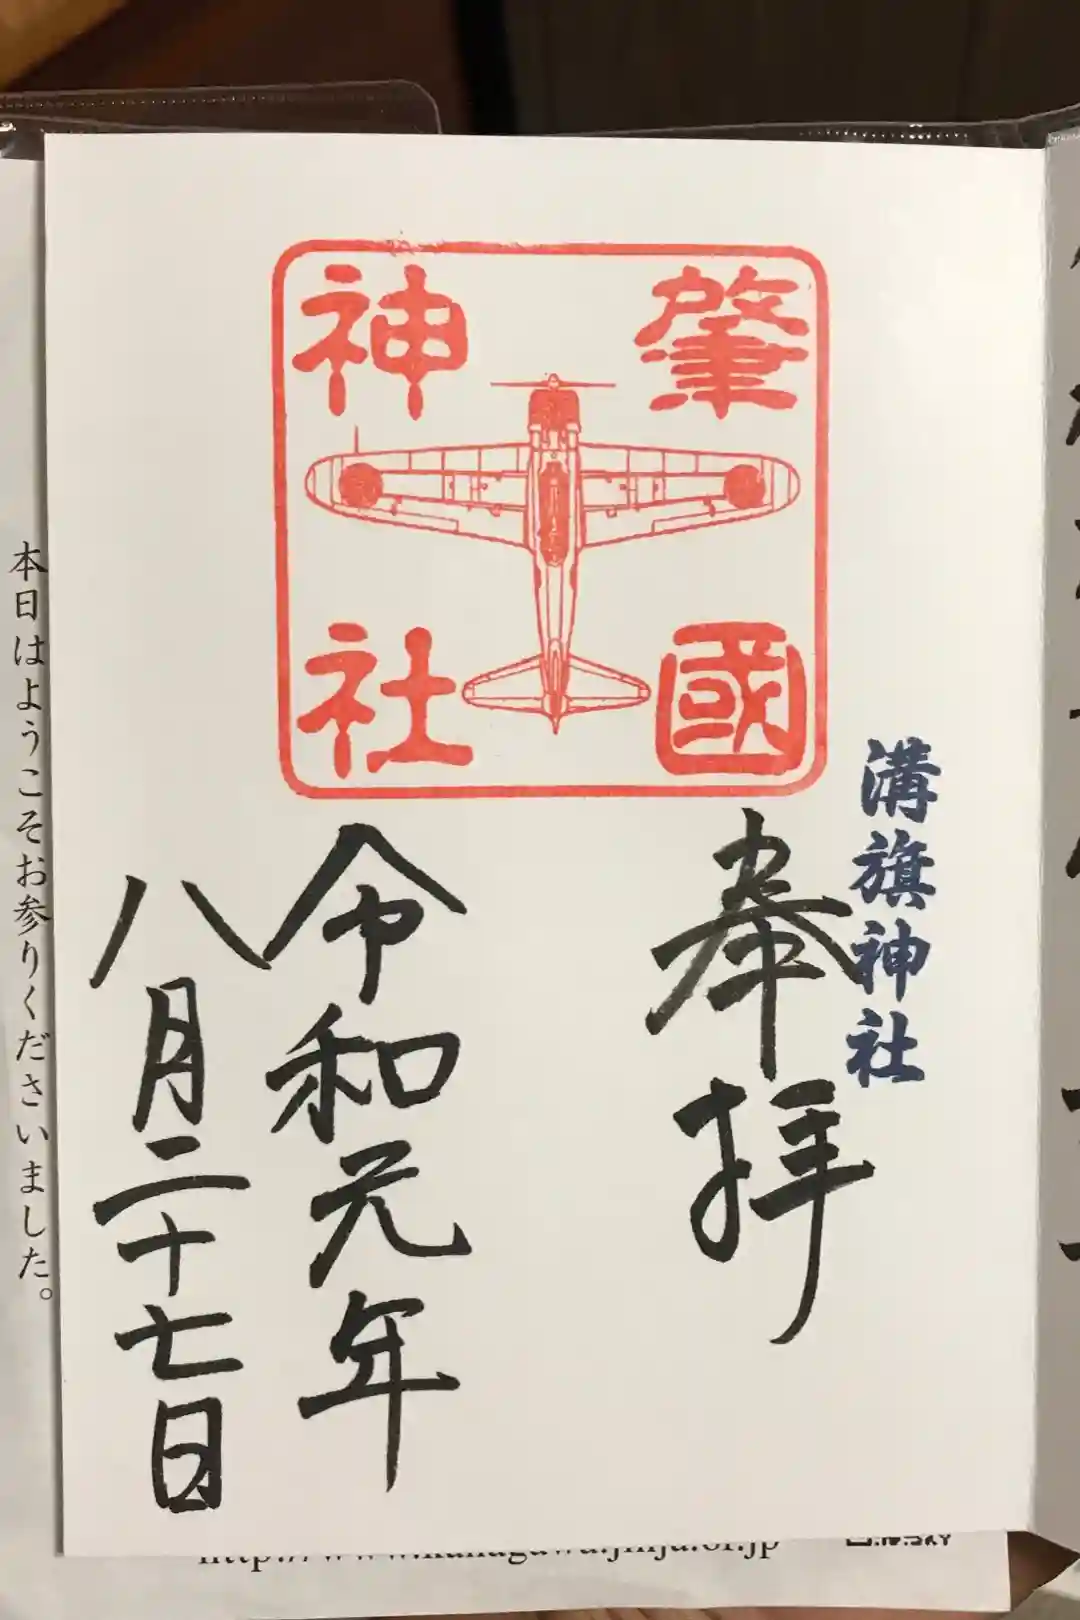 肇國
神社
溝旗神社
奉拝
令和元年
八月二十七日
本日はようこそお参りくださいました。